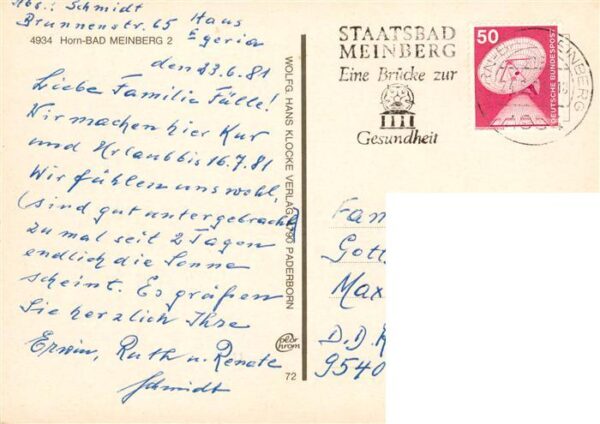 Abs.: Schmidt
Brunnenstr. 65 Haus
Egeria
4934 Horn-BAD MEINBERG 2
den 23.6.81
Liebe Familie Fülle!
Wir machen hier Kur
und Urlaub bis 16.7.81
Wir fühlen uns wohl,
(sind gut untergebracht)
zumal seit 2 Tagen
endlich die Sonne
scheint. Es grüßen
Sie herzlich Ihre
Erwin, Ruth u. Renate
Schmidt
WOLFG. HANS KLOCKE VERLAG 4790 PADERBORN
72
STAATSBAD
MEINBERG
Eine Brücke zur
Gesundheit
50
DEUTSCHE BUNDESPOST
Fam
Gott
Max
D.D.R
9540